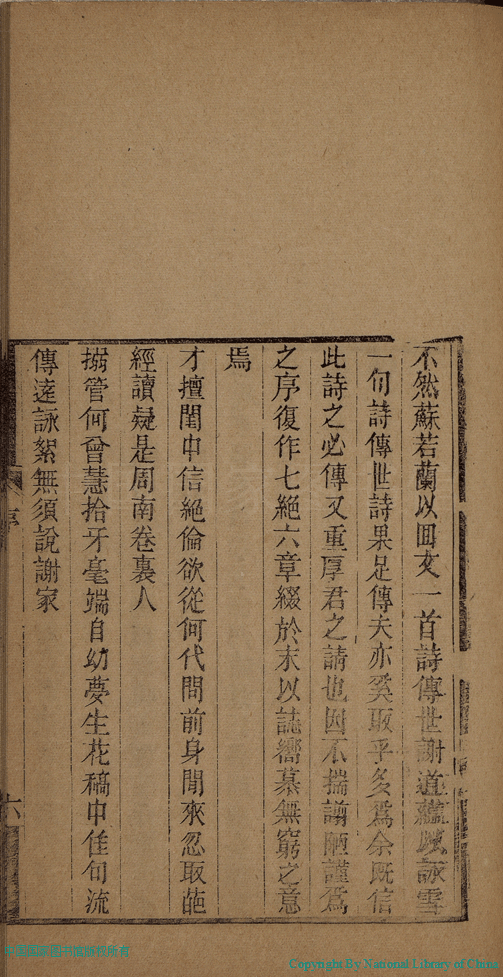 不然蘇若蘭以回文一首詩傳世謝道蘊以詠雪
一句詩傳世詩果足傳夫亦奚取乎多爲余既信
此詩之必傳又重厚君之請也因不揣譾陋謹爲
之序復作七絶六章綴於末以誌嚮慕無窮之意
焉
才擅閨中信絶倫欲從何代問前身閒來忽取葩
經讀疑是周南卷裏人
搦管何曾慧拾牙毫端自幼夢生花稿中佳句流
傳遠詠絮無須說謝家
序
六
Copyright By National Library of China